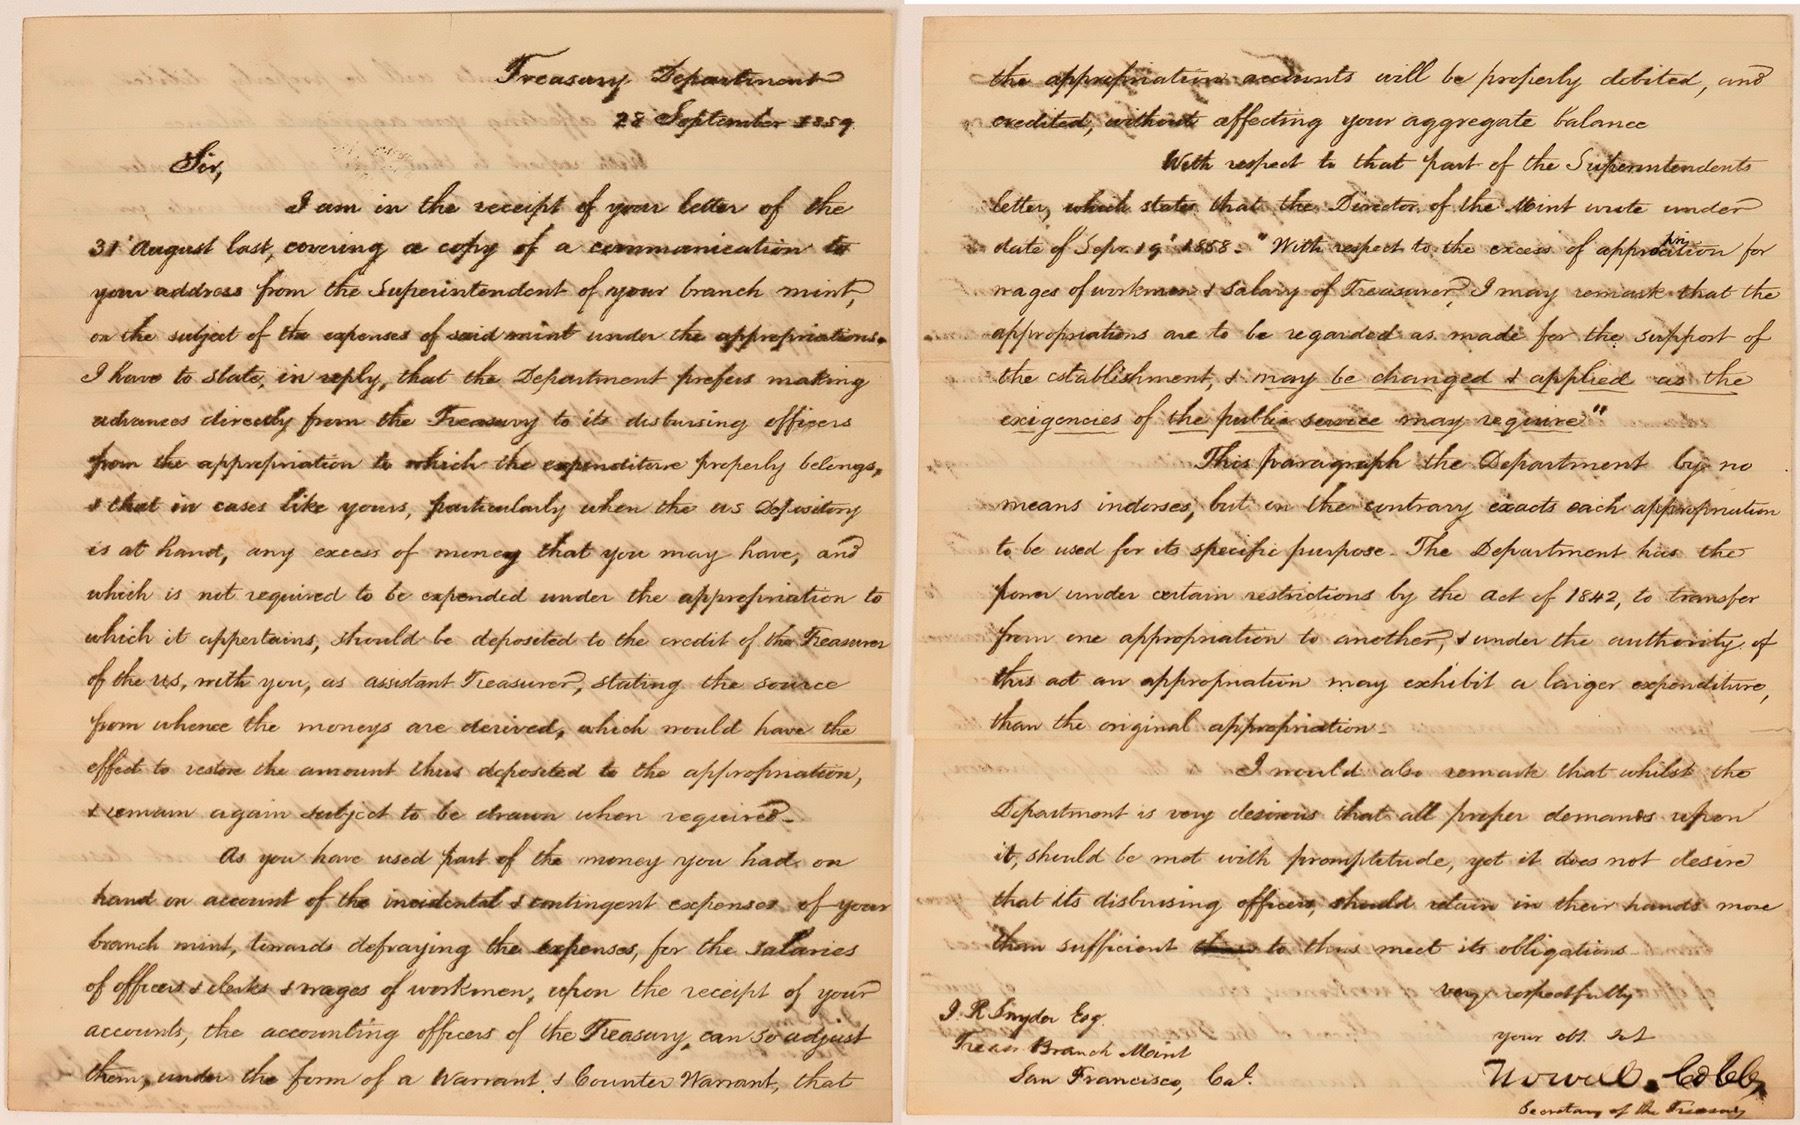 Treasury Department
28 September 1859
Sir,
I am in the receipt of your letter of the
31 August last, covering a copy of a communication to
your address from the Superintendent of your branch mint,
on the subject of the expenses of said mint under the appropriations.
I have to state, in reply, that the Department prefers making
advances directly from the Treasury to its disbursing officers
from the appropriation to which the expenditure properly belongs,
& that in cases like yours, particularly when the US Depository
is at hand, any excess of money that you may have, and
which is not required to be expended under the appropriation to
which it appertains, should be deposited to the credit of the Treasurer
of the US, with you, as assistant Treasurer, stating the source
from whence the moneys are derived, which would have the
effect to restore the amount thus deposited to the appropriation,
& remain again subject to be drawn when required.
As you have used part of the money you had on
hand on account of the incidental & contingent expenses of your
branch mint, towards defraying the expenses, for the salaries
of officers & clerks & wages of workmen, upon the receipt of your
accounts, the accounting officers of the Treasury, can so adjust
them, under the form of a Warrant & Counter Warrant, that
the appropriation accounts will be properly debited, and
credited, without affecting your aggregate balance
With respect to that part of the Superintendents
letter, which states that the Director of the Mint wrote under
date of Sepr. 19' 1858. "With respect to the excess of appropriation for
wages of workmen & salary of Treasurer, I may remark that the
appropriations are to be regarded as made for the support of
the establishment, & may be changed & applied as the
exigencies of the public service may require"
This paragraph the Department by no
means indorses, but on the contrary exacts each appropriation
to be used for its specific purpose. The Department has the
power under certain restrictions by the act of 1842, to transfer
from one appropriation to another, & under the authority of
this act an appropriation may exhibit a larger expenditure,
than the original appropriation.
I would also remark that whilst the
Department is very desirous that all proper demands upon
it, should be met with promptitude, yet it does not desire
that its disbursing officers, should retain in their hands more
than sufficient to thus meet its obligations.
very respectfully
your obt. svt
Howell Cobb,
Secretary of the Treasury
J. R Snyder Esq.
Treasr Branch Mint
San Francisco, Cal.